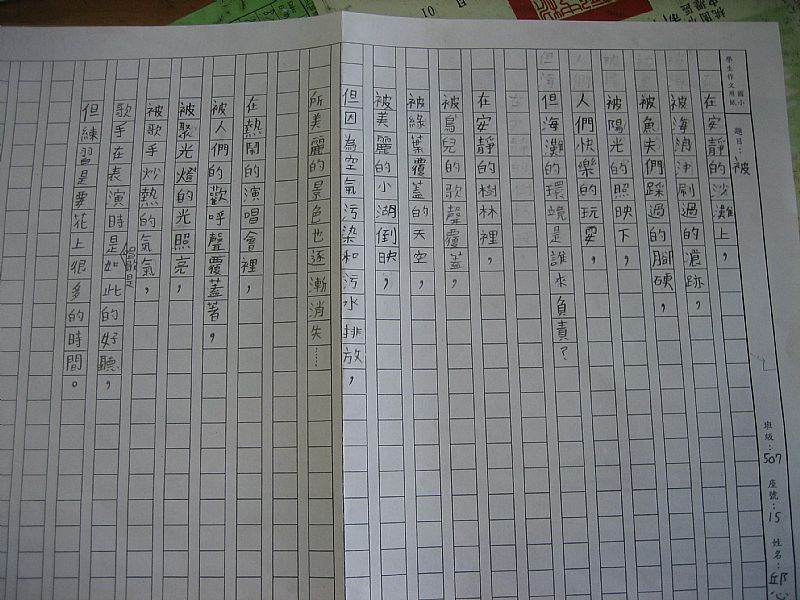 國小
學生作文用紙
題目：被
班級：507 座號：15 姓名：邱心
在安靜的沙灘上，
被海浪沖刷過的痕跡，
被魚夫們踩過的腳硬，
被陽光的照映下，
人們快樂的玩耍，
但海灘的環境是誰來負責？
在安靜的樹林裡，
被鳥兒的歌聲覆蓋，
被綠葉覆蓋的天空，
被美麗的小湖倒映，
但因為空氣污染和污水排放，
所美麗的景色也逐漸消失……
在熱鬧的演唱會裡，
被人們的歡呼聲覆蓋著，
被聚光燈的光照亮，
被歌手炒熱的氣氣，
歌手在表演時是如此的好聽，
但練習是要花上很多的時間。
10